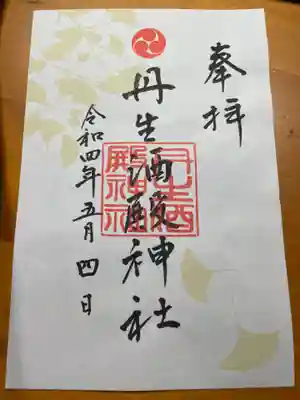 奉拝
丹生酒殿神社
丹生酒殿神社
令和四年五月四日